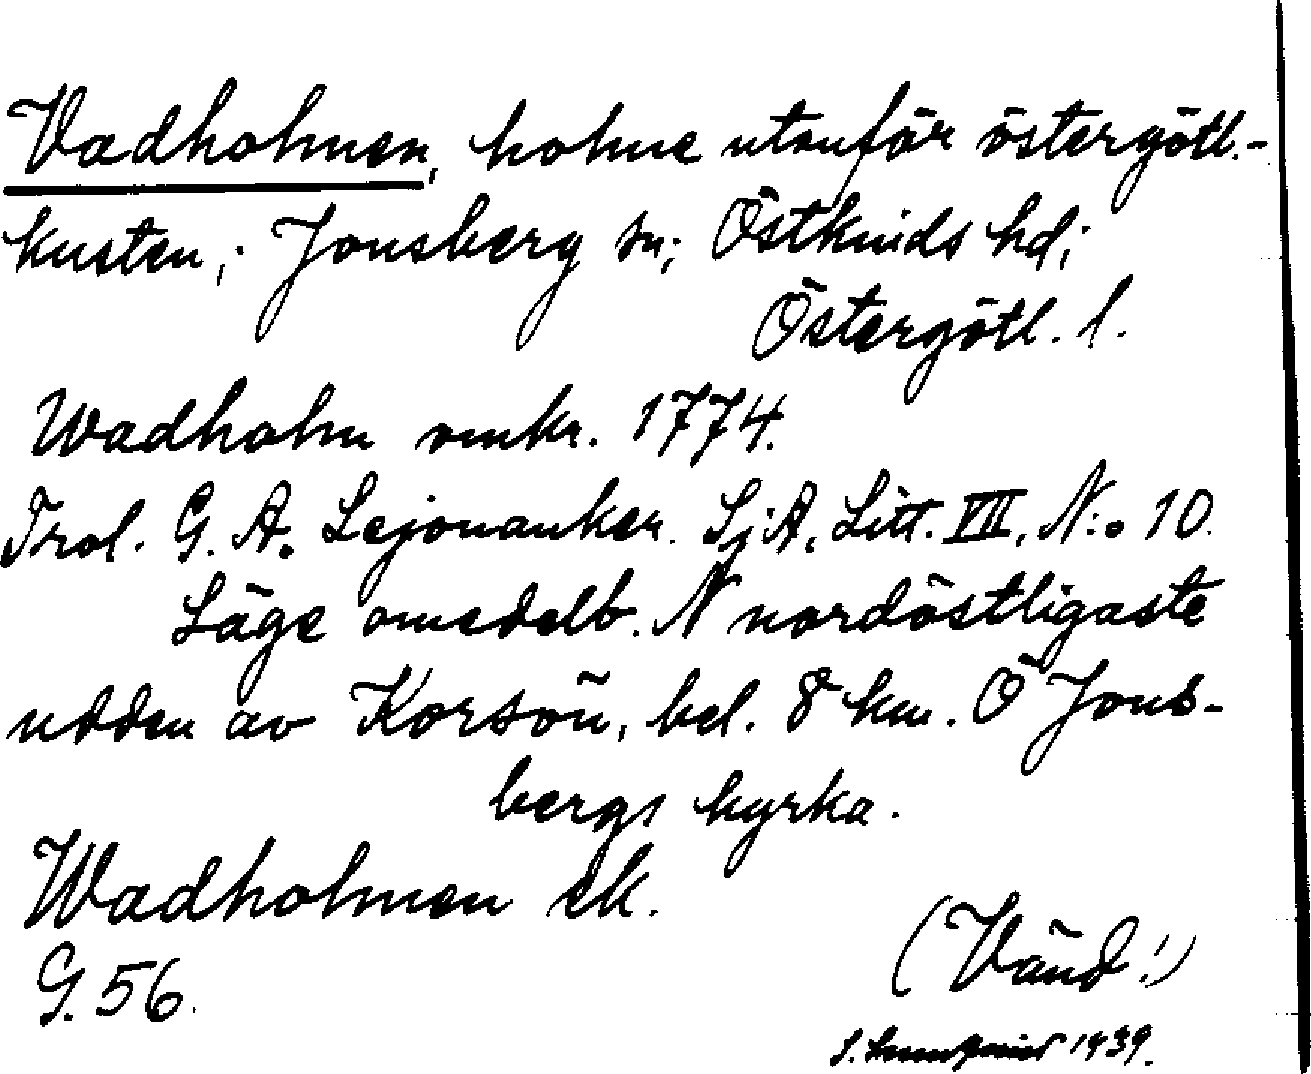 Vadholmen, holme utanför östergötl.-
kusten; Jonsberg sn; Östkinds hd;
Östergötl. l.
Wadholm omkr. 1774.
Trol. G. A. Lejonanker. SjA, Litt. VII, N:o 10.
Läge omedelb. N nordöstligaste
udden av Korsön, bel. 8 km. Ö Jons-
bergs kyrka.
Wadholmen ek.
G. 56.
(Vänd!)
1939.